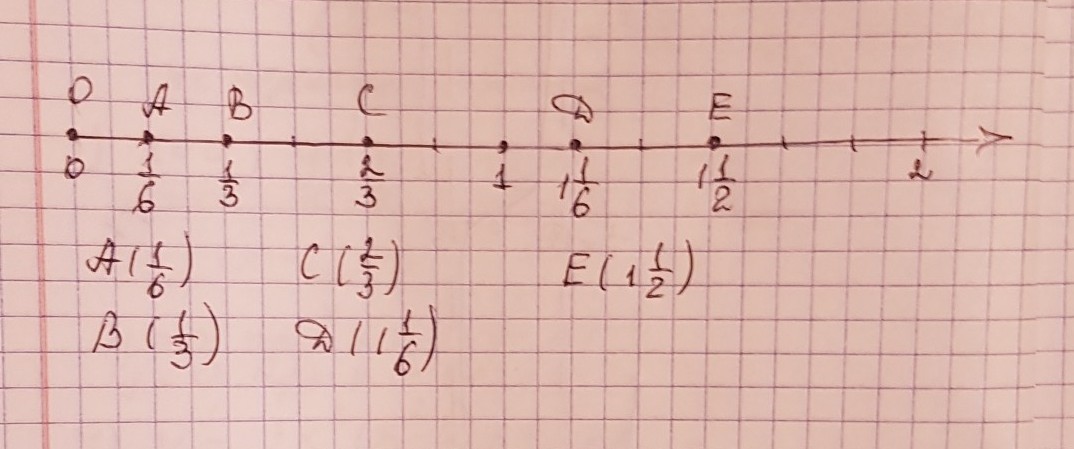 O A B C D E
0 1/6 1/3 2/3 1 1 1/6 1 1/2 2
A(1/6) C(2/3) E(1 1/2)
B(1/3) D(1 1/6)